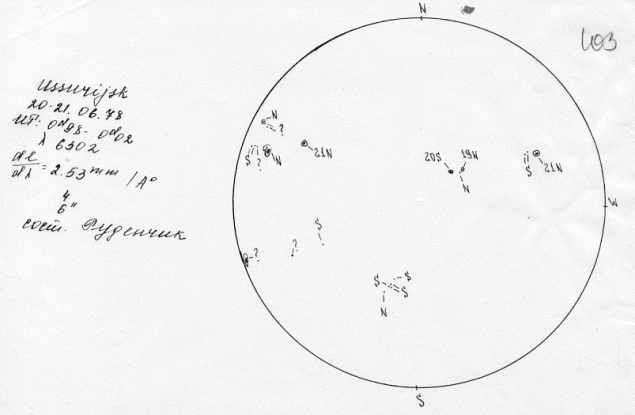 N
403
Ussurijsk
20-21.06.78
UT: 0d98- 0d02
λ 6302
dl/dλ = 2.53 mm / A°
4
6"
сост. Руденчик
N
?
S
?
N
N12
S02
N91
N
S
N12
W
S
?
?
S
S
S
N
S